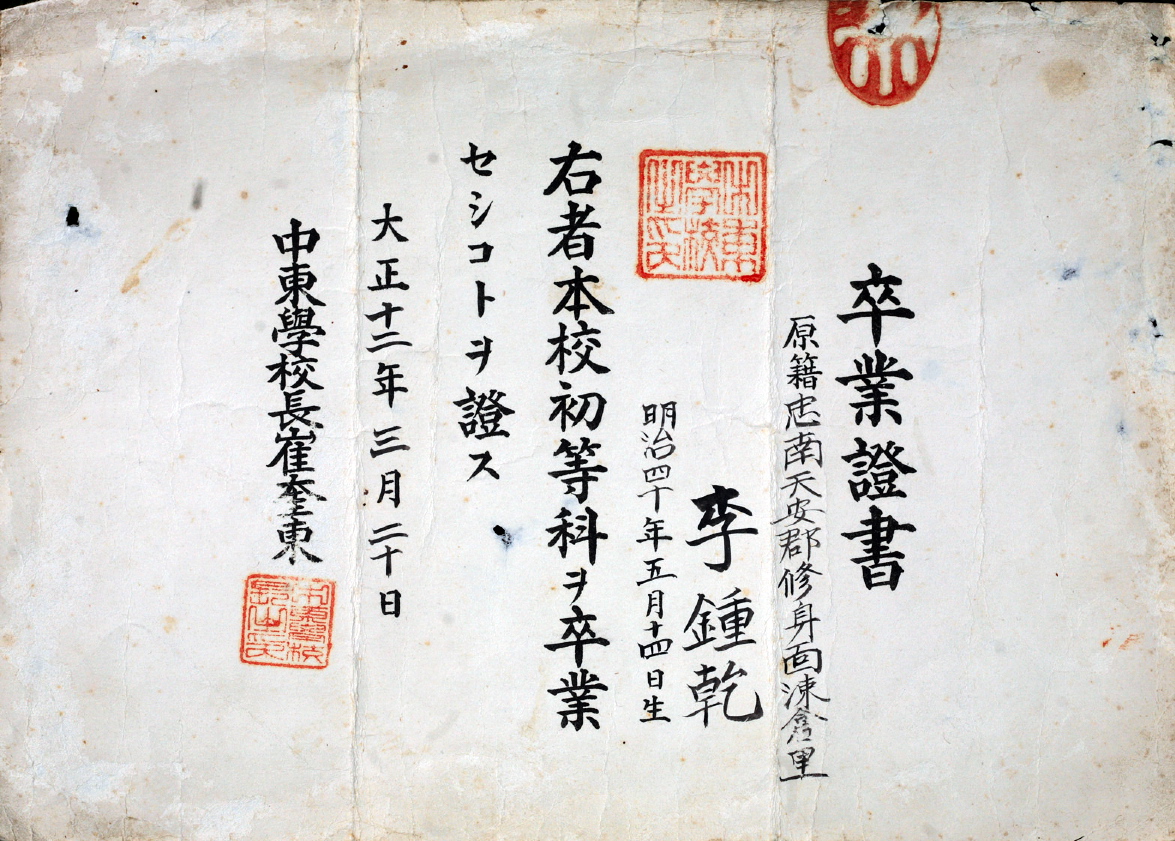 卒業證書
原籍忠南天安郡修身面涑倉里
李鍾乾
明治四十年五月十四日生
中東學校之印
右者本校初等科ヲ卒業
セシコトヲ證ス
大正十二年三月二十日
中東學校長崔奎東
中東學校長之印